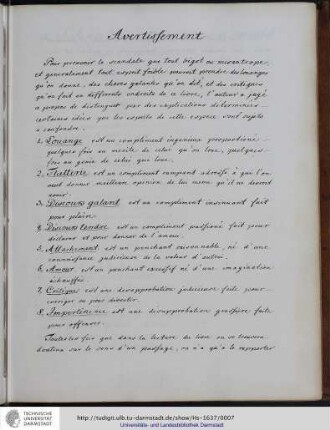 Avertissement
Pour prevenir le scandale que tout bigot ou misantrope,
et generalement tout esprit foible pourroit prendre des louanges
qu'on donne, des choses galantes qu'on dit, et des critiques
qu'on fait en differents endroits de ce livre, l'auteur a jugé
a propos de distinguer par des explications
certaines idées que les esprits de cette espece sont sujets
a confondre.
1. Louange est un compliment ingenieux proportioné
quelques fois au merite de celui qu'on loue, quelques
fois au genie de celui qui loue.
2. Flatterie est un compliment rampant à que l'on
veut donner meilleure opinion de lui meme qu'il ne devroit
avoir.
3. Discours galant est un compliment fait
pour plaire.
4. Discours tendre est un compliment passioné fait pour
declarer et pour donner de l'amour.
5. Attachement est un penchant raisonable, né d'une
connoissance judicieuse de la valeur d'autrui.
6. Amour est un penchant excessif né d'une imagination
echauffée.
7. Critique est une desapprobation judicieuse faite pour
corriger ou pour divertir.
8. Impertinence est une desapprobation grossiere faite
pour offenser.
Toutes les fois que dans la lecture du livre on se trouvera
douteux sur le sens d'un passage, on n'a qu'à le rapporter
TECHNISCHE
UNIVERSITÄT
DARMSTADT
http://tudigit.ulb.tu-darmstadt.de/show/Hs-1637/0007
Universitäts- und Landesbibliothek Darmstadt